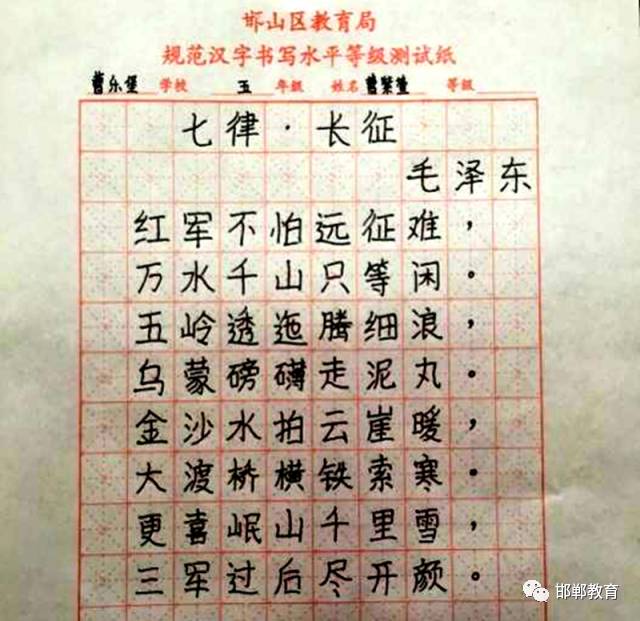 邯山区教育局
规范汉字书写水平等级测试纸
曹乐堡 学校 五 年级 姓名 曹 等级
七律·长征
毛泽东
红军不怕远征难，
万水千山只等闲。
五岭透迤腾细浪，
乌蒙磅礴走泥丸。
金沙水拍云崖暖，
大渡桥横铁索寒。
更喜岷山千里雪，
三军过后尽开颜。
邯郸教育